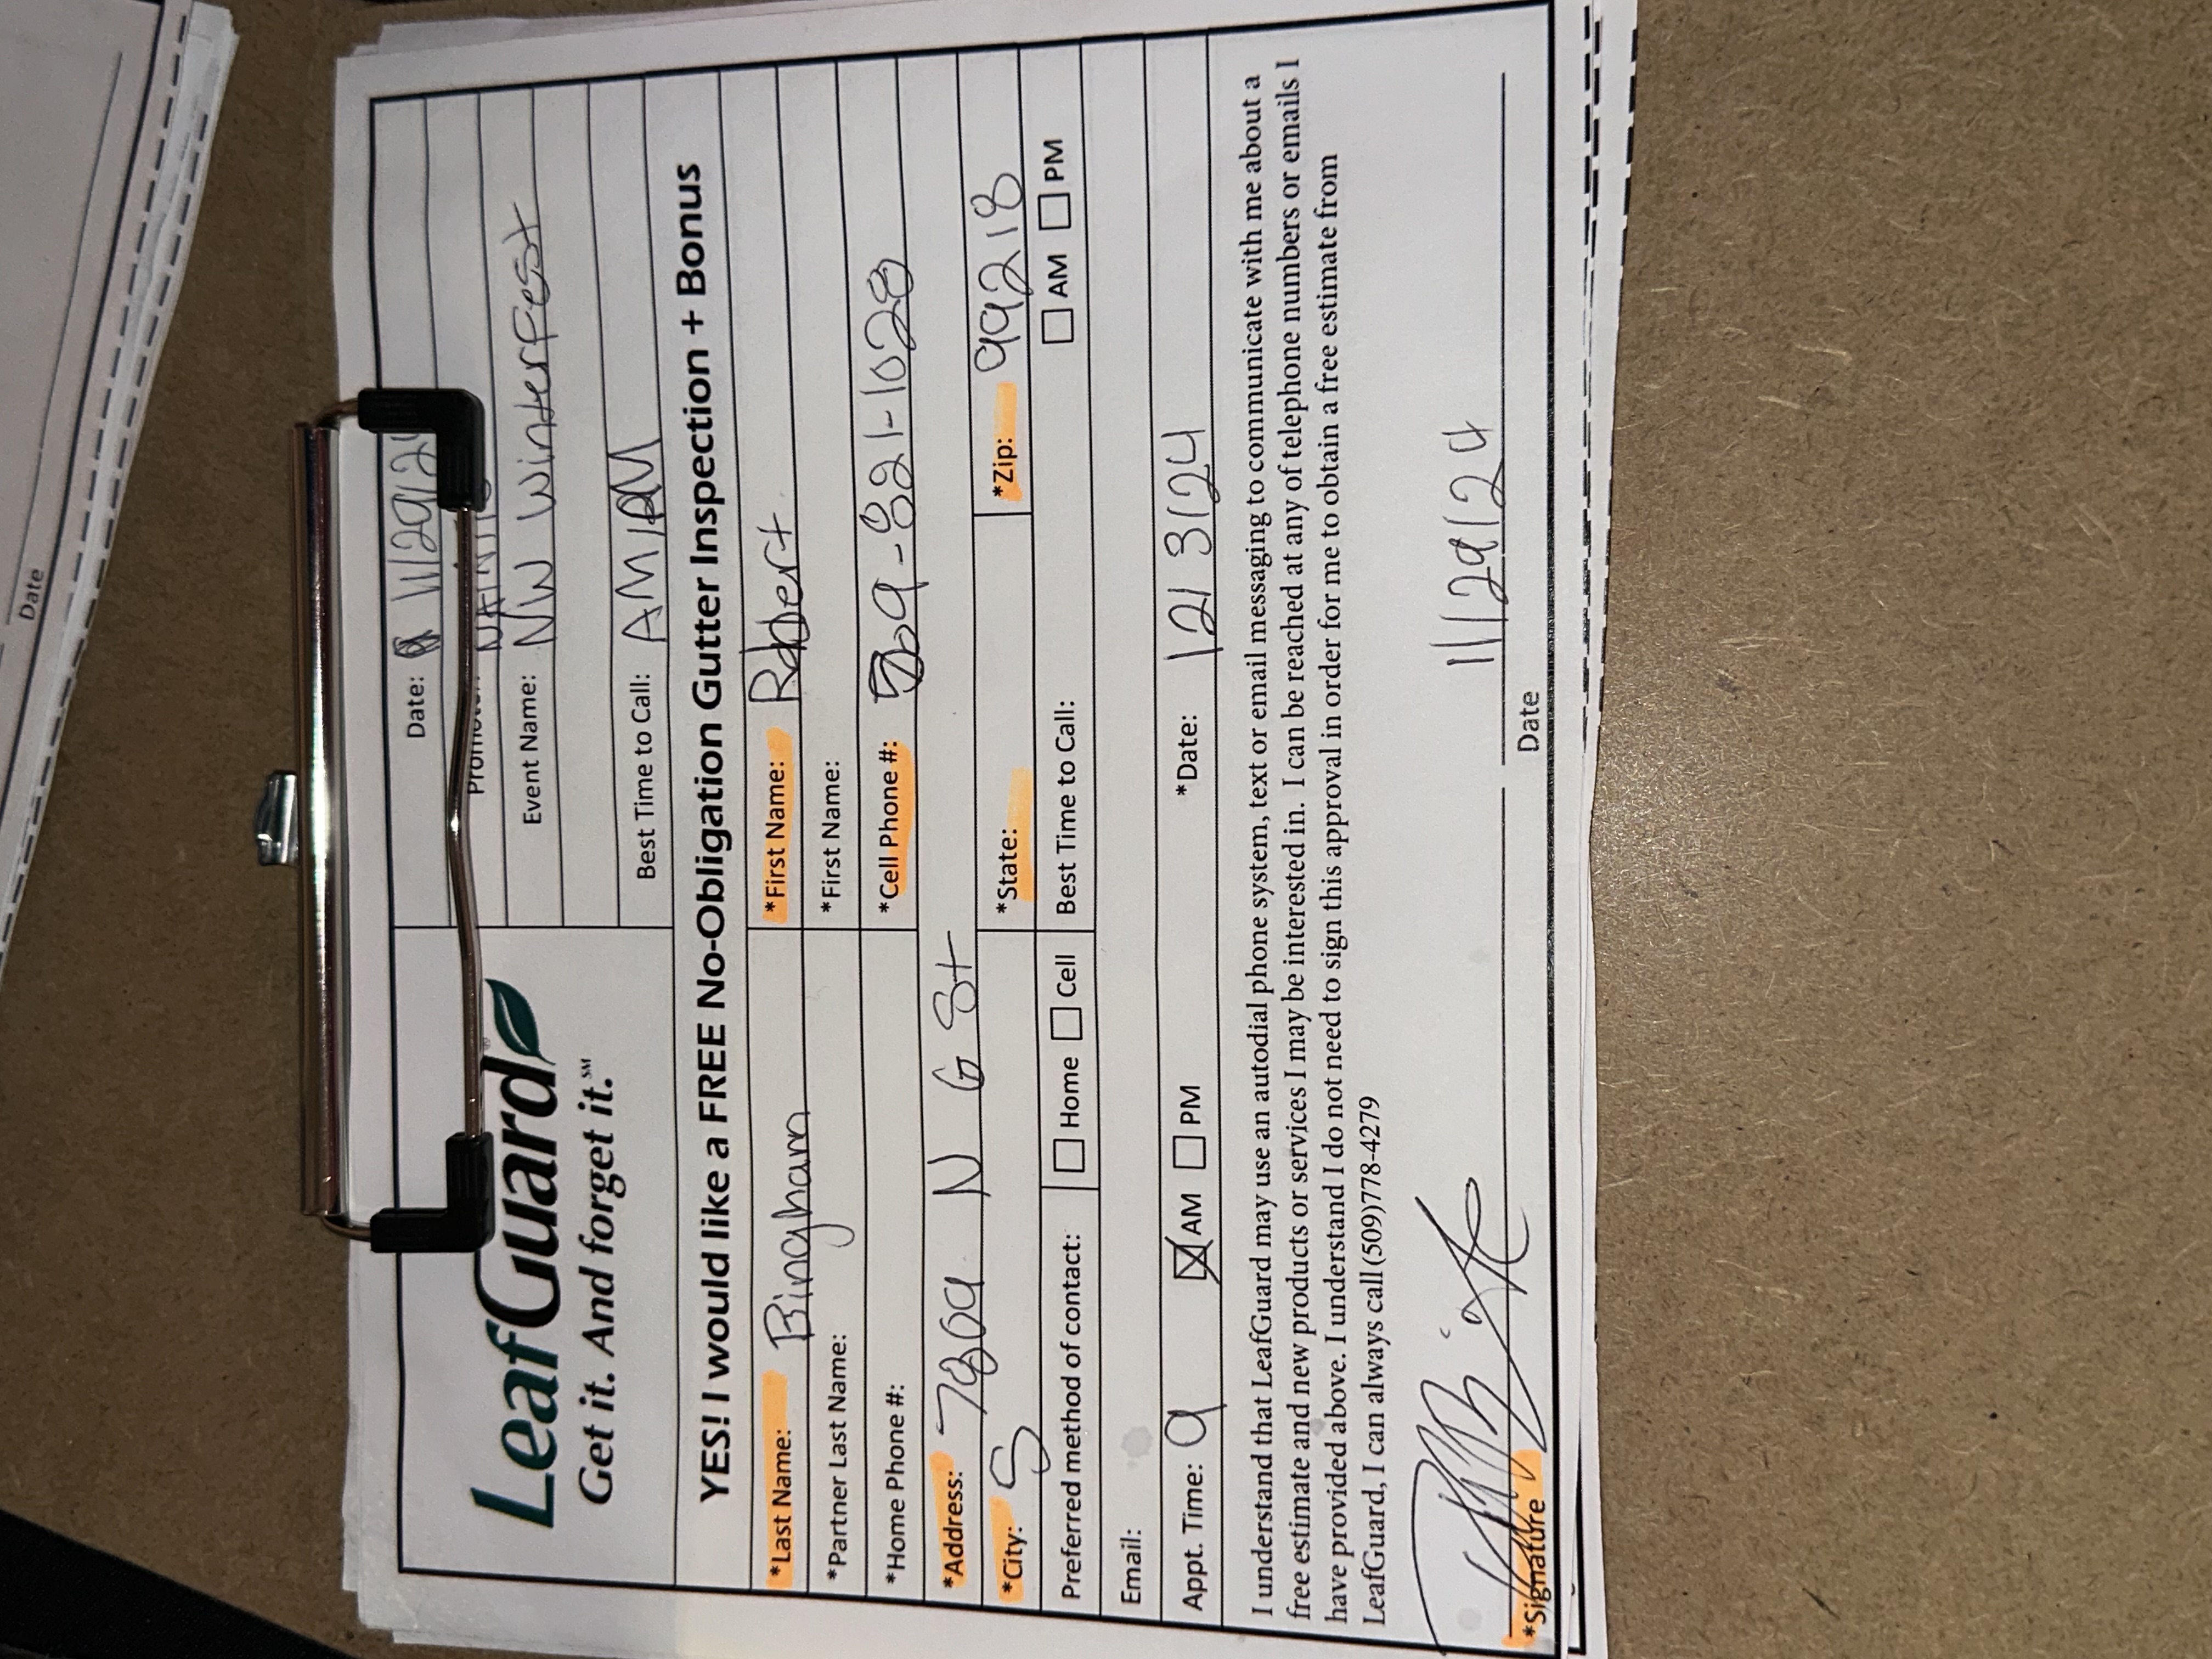 Date
Date: 11/29/2
Event Name: NW Winterfest
LeafGuard®
Get it. And forget it.℠
Best Time to Call: AM/PM
YES! I would like a FREE No-Obligation Gutter Inspection + Bonus
*Last Name: Bingham *First Name: Robert
*Partner Last Name: *First Name:
*Home Phone #: *Cell Phone #: 509-821-1028
*Address: 7809 N G St
*City: S *State: *Zip: 99218
Preferred method of contact: Home Cell Best Time to Call: AM PM
Email:
Appt. Time: 9 AM PM *Date: 12/3/24
I understand that LeafGuard may use an autodial phone system, text or email messaging to communicate with me about a
free estimate and new products or services I may be interested in. I can be reached at any of telephone numbers or emails I
have provided above. I understand I do not need to sign this approval in order for me to obtain a free estimate from
LeafGuard, I can always call (509)778-4279
11/29/24
*Signature Date